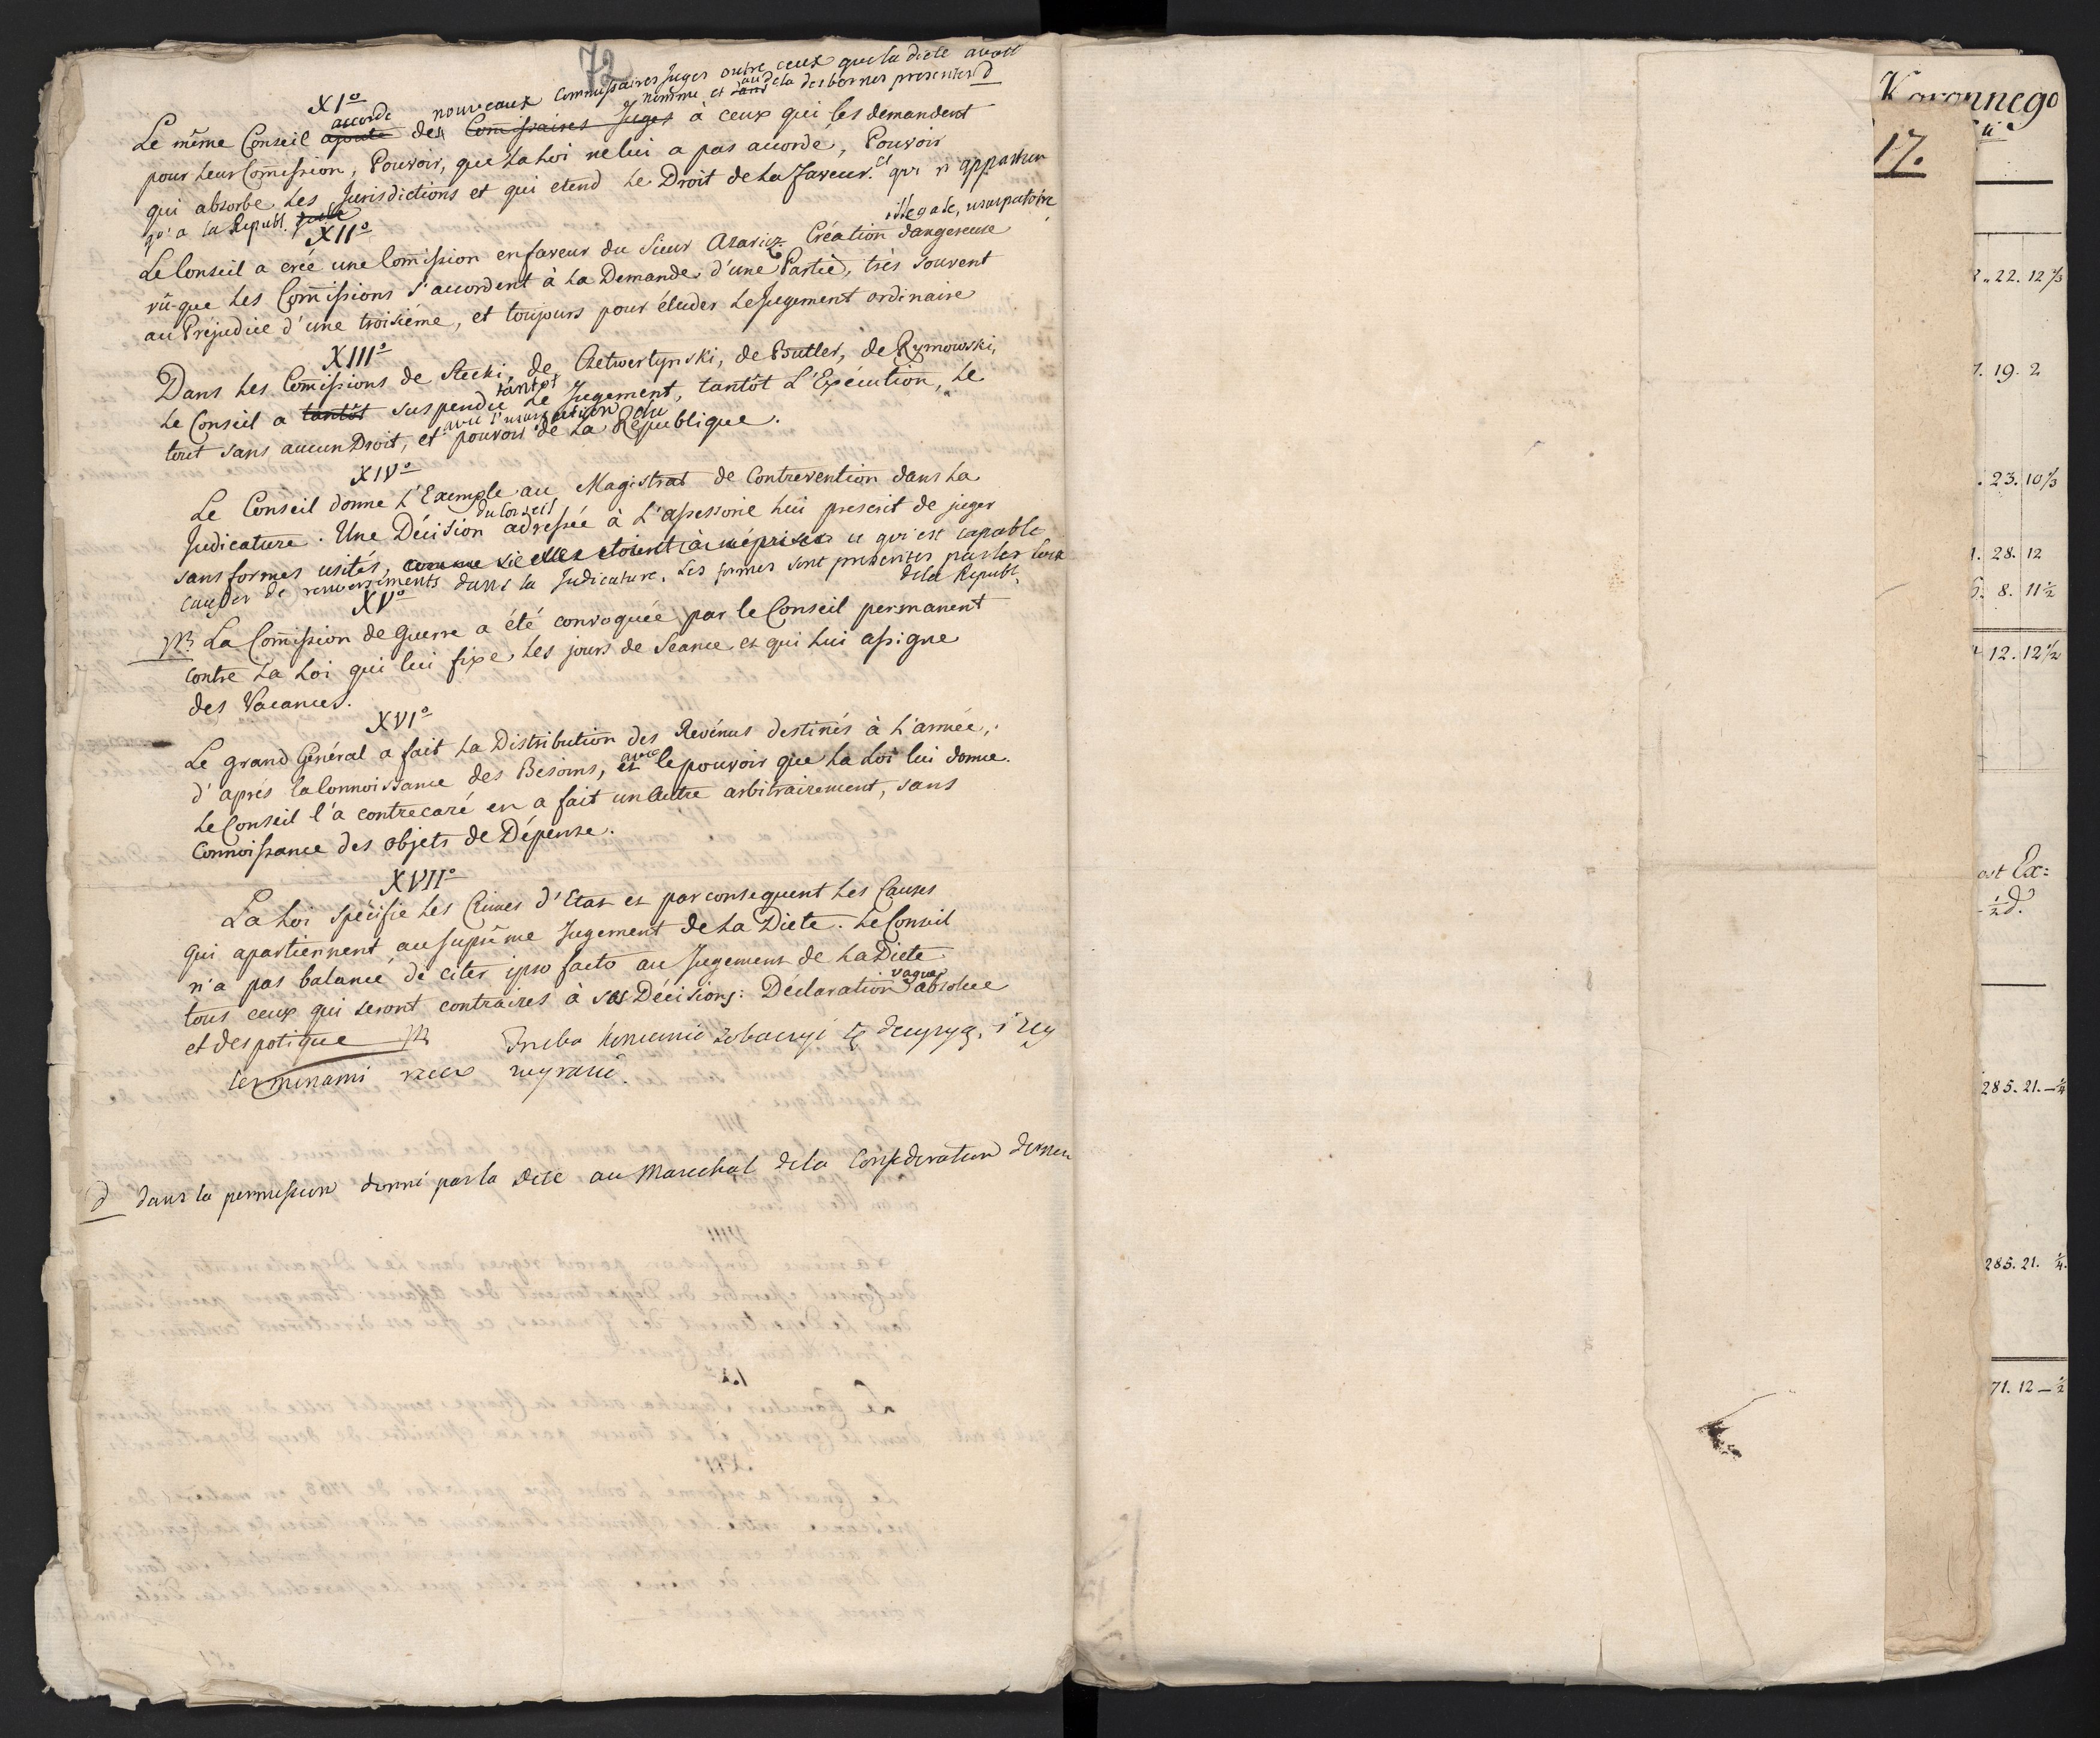 72
XI°
nouveaux Commissaires Juges outre ceux que la diete avait
nommé et au dela des bornes prescrites d
accorde
Le même Conseil ajoute des Commissaires Juges à ceux qui les demandent
pour leur Com̄ission, Pouvoir, que La Loi ne lui a pas accordé, Pouvoir
qui absorbe Les Jurisdictions et qui etend Le Droit de La Faveur. et qui n'appartien
qu'a la Republ.
XII°
illegale, usurpatoire
Le Conseil a créé une Com̄ission en faveur du Sieur Azaricz. Création dangereuse
vû que Les Com̄issions s'accordent à La Demande d'une Partie, très souvent
au Préjudice d'une troisiéme, et toujours pour éluder Le Jugement ordinaire
XIII°
Dans Les Com̄issions de Stecki, de Czetwertynski, de Butler, de Rymowski,
tantot
Le Conseil a tantôt suspendu Le Jugement, tantôt L'Exécution, Le
avec l'usurpation du
tout sans aucun Droit, et pouvoir de La République.
XIV°
Le Conseil donne L'Exemple au Magistrat de Contrevention dans La
du Conseil
Judicature. Une Décision adressée à L'assessorie Lui prescrit de juger
sans formes usités, comme si elles etoient à mépriser ce qui est capable
causer de renversements dans la Judicature. Les formes sont prescrites par les Loix
de la Republ.
XV°
NB La Com̄ission de Guerre a été convoquée par le Conseil permanent
Contre La Loi qui lui fixe Les jours de Seance et qui Lui assigne
des Vacances.
XVI°
Le grand Général a fait La Distribution des Revénus destinés à L'armée,
d'aprés la Connoissance des Besoins, et avec le pouvoir que La Loi lui donne.
Le Conseil l'a contrecaré en a fait un Autre arbitrairement, sans
Connoissance des objets de Dépense.
XVII°
La Loi spécifie Les Crimes d'Etat et par consequent Les Causes
qui apartiennent au suprême Jugement de La Diete. Le Conseil
n'a pas balancé de citer ipso facto au Jugement de La Diete
tous ceux qui seront contraires à ses Décisions: Déclaration vague absolue
et despotique NB Trzeba koniecznie zobaczyć tę decyzyą, i iey
terminami rzecz wyrazić.
d dans la permission donné par la Diete au Marechal de la Confederation
Koronnego
17.
22. 12
19. 2
23. 10
28. 12
8. 11½
12. 12½
Ex:
½ d.
285. 21. —¼
285. 21. ¼
71. 12 — ½